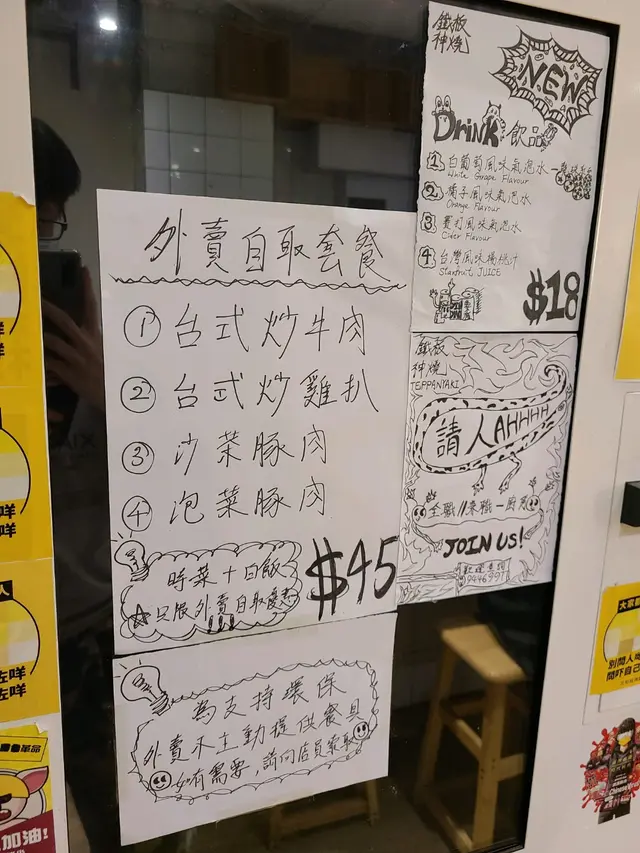 外賣自取套餐
① 台式炒牛肉
② 台式炒雞扒
③ 沙菜豚肉
④ 泡菜豚肉
時菜+白飯
只限外賣自取優惠
$45
為支持環保
外賣不主動提供餐具
如有需要,請向店員索取
鐵板
神燒
NEW
Drink 飲品
1 白葡萄風味氣泡水
White Grape Flavour
2 橘子風味氣泡水
Orange Flavour
3 賽打風味氣泡水
Cider Flavour
4 台灣風味楊桃汁
Starfruit JUICE
$18
鐵板
神燒
TEPPANYAKI
請人AHHHH
全職//兼職一廚房
JOIN US!
咩
咩
人
左咩
左咩
加油!
革命
大眾
別問人
問吓自己